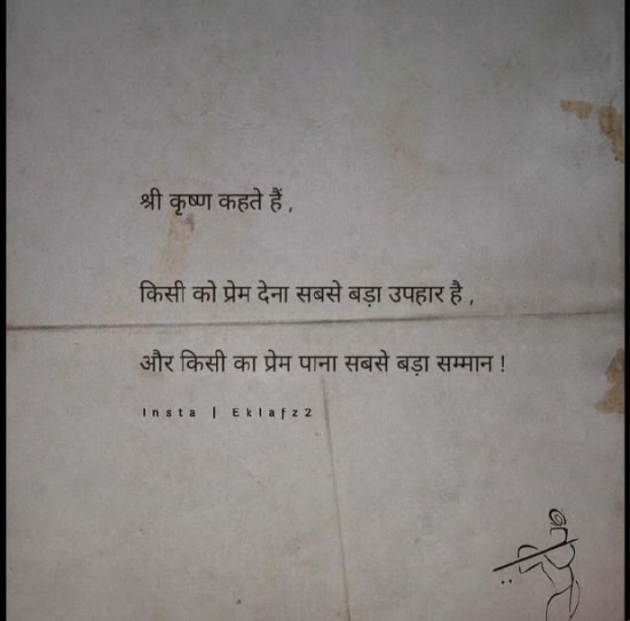 श्री कृष्ण कहते हैं ,
किसी को प्रेम देना सबसे बड़ा उपहार है ,
और किसी का प्रेम पाना सबसे बड़ा सम्मान !
Insta | Eklafz2